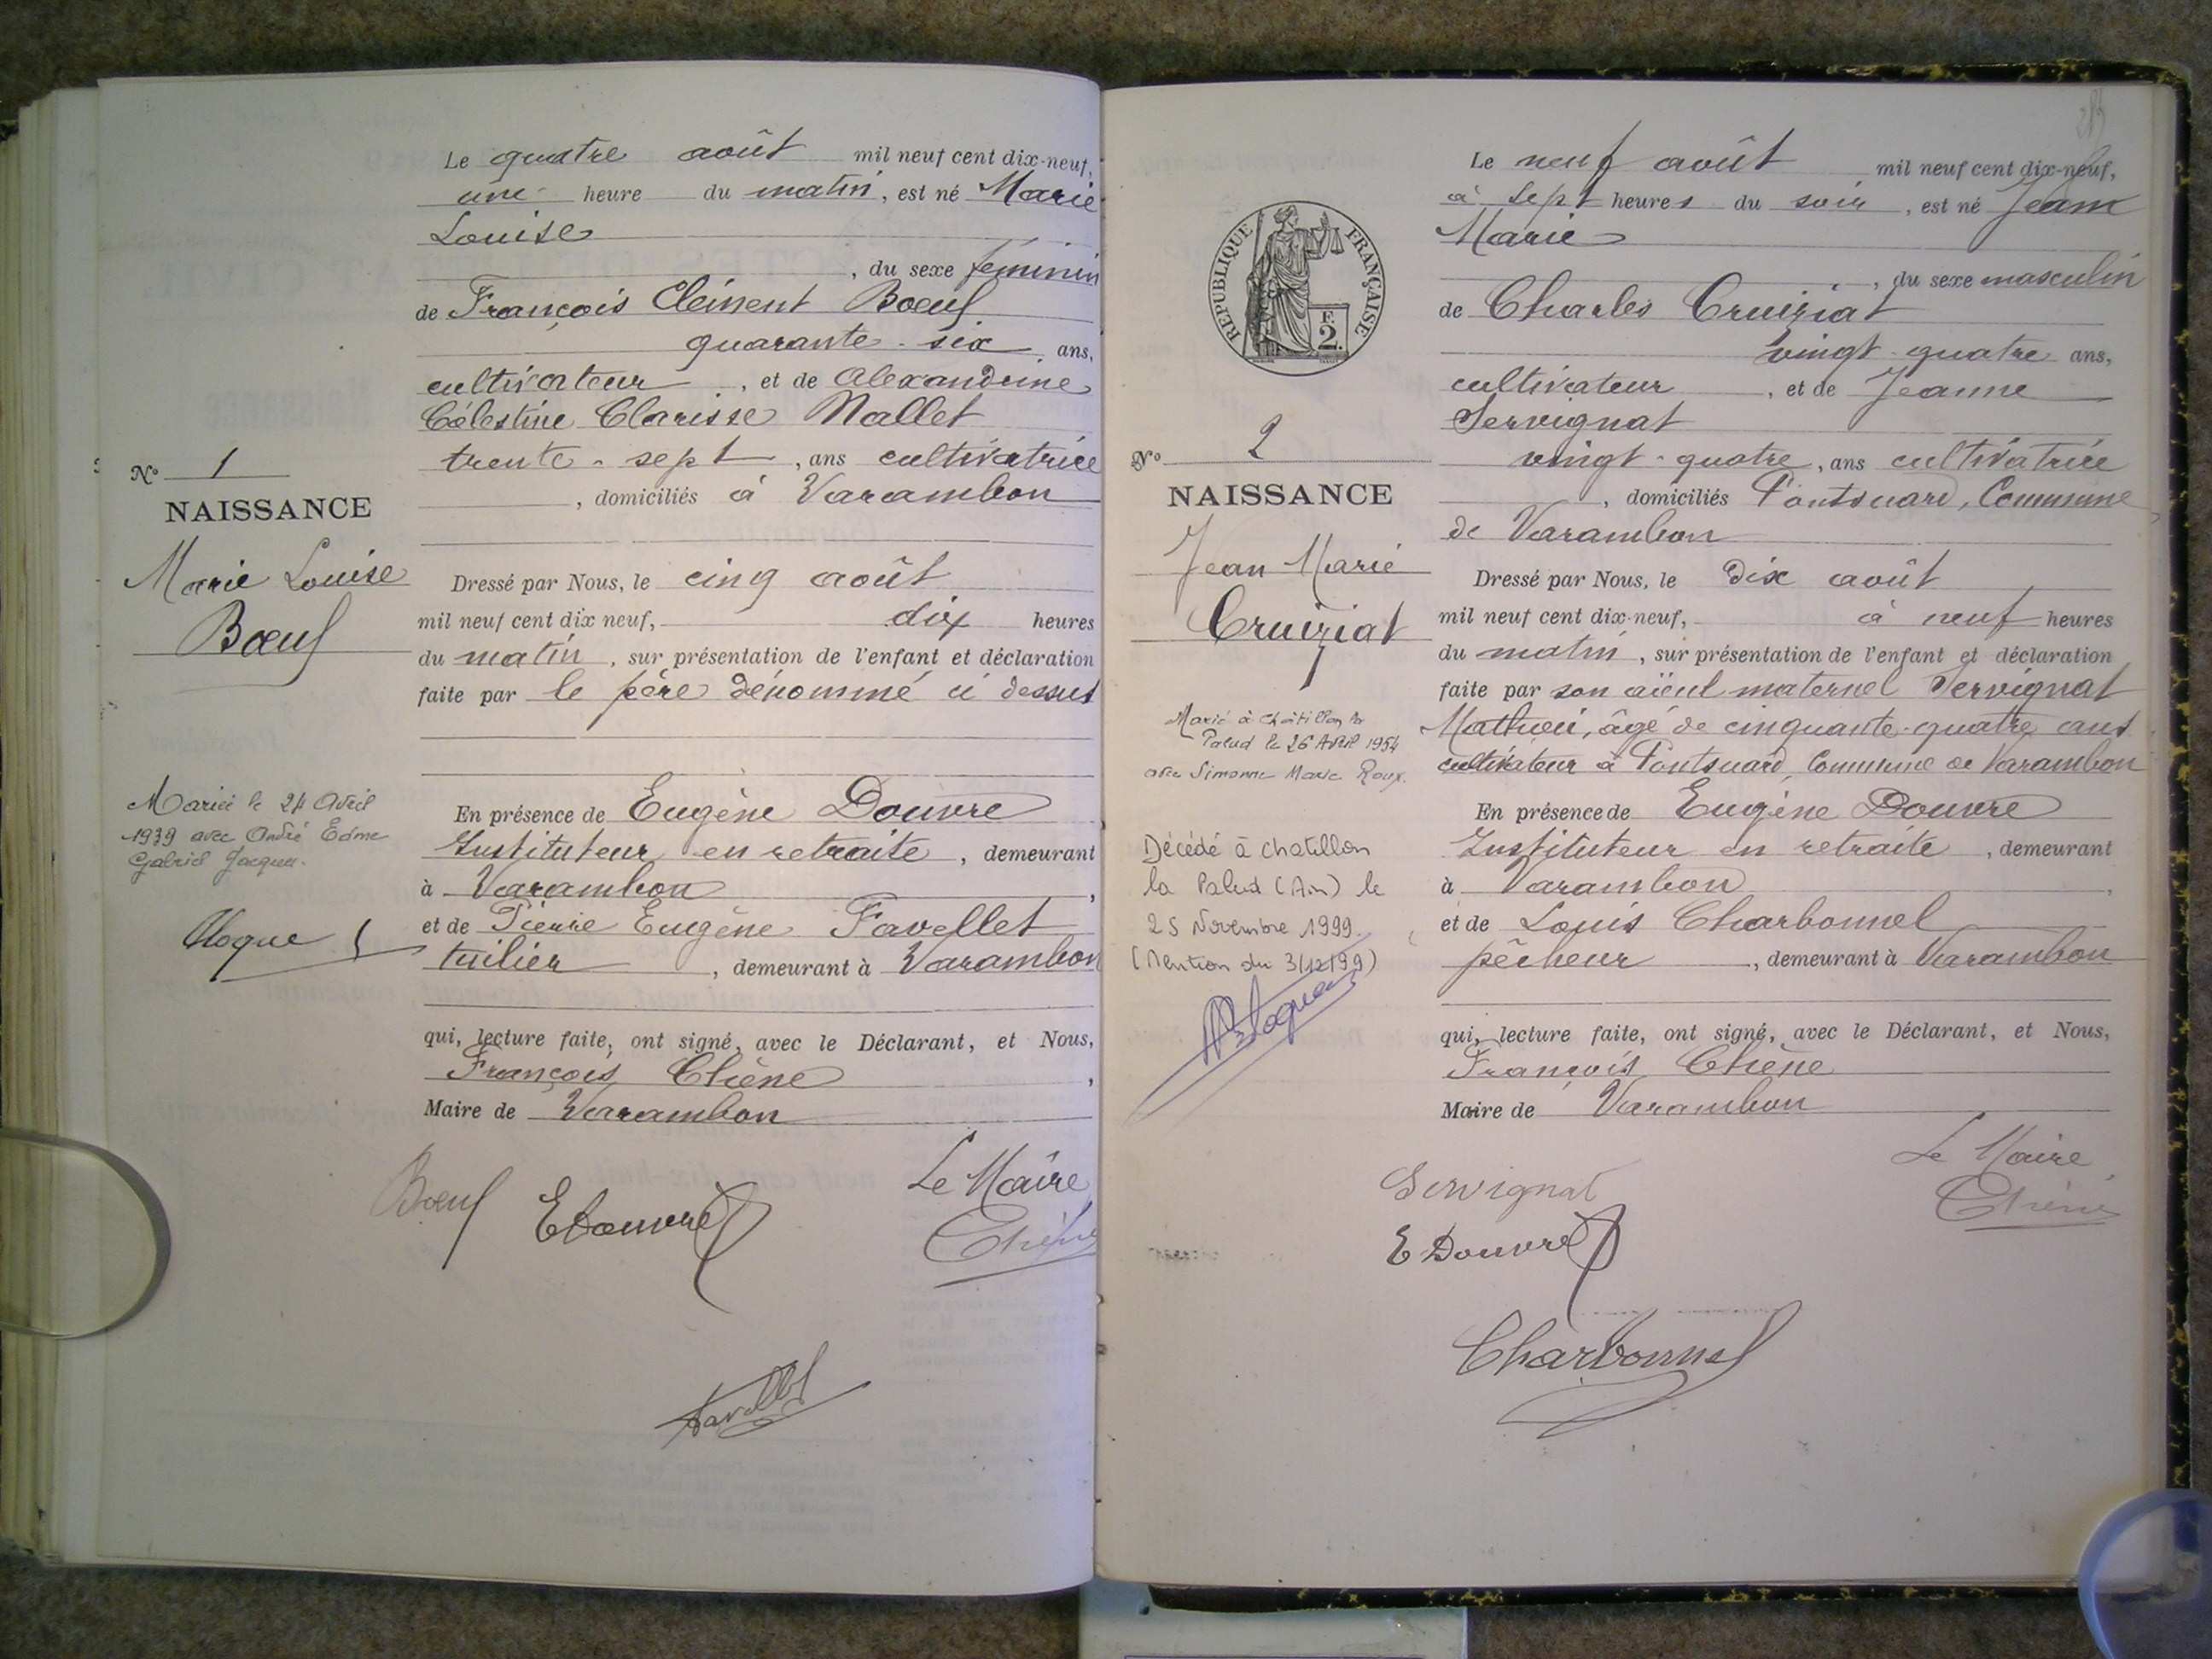 Le quatre août mil neuf cent dix-neuf,
une heure du matin, est né Marie
Louise
, du sexe féminin
de François Clément Boeuf
quarante-six ans,
cultivateur, et de Alexandrine
Célestine Clarisse Nallet
trente-sept, ans cultivatrice
, domiciliés à Varambon
N° 1
NAISSANCE
Marie Louise
Boeuf
Dressé par Nous, le cinq août
mil neuf cent dix neuf, dix heures
du matin, sur présentation de l'enfant et déclaration
faite par le père dénommé ci dessus
Mariée le 24 Avril
1939 avec André Edme
Gabriel
En présence de Eugène Douvre
Instituteur en retraite, demeurant
à Varambon,
et de Pierre Eugène Favellet
tuilier, demeurant à Varambon
qui, lecture faite, ont signé, avec le Déclarant, et Nous,
François Chêne,
Maire de Varambon
Le Maire
Boeuf EDouvre Chêne
Favellet
Le neuf août mil neuf cent dix-neuf,
à sept heures du soir, est né Jean
Marie
, du sexe masculin
de Charles Cruiziat
vingt-quatre ans,
cultivateur, et de Jeanne
Servignat
vingt-quatre, ans cultivatrice
, domiciliés Commune
de Varambon
RÉPUBLIQUE FRANÇAISE
F.
2.
N° 2
NAISSANCE
Jean Marie
Cruiziat
Dressé par Nous, le dix août
mil neuf cent dix-neuf, à neuf heures
du matin, sur présentation de l'enfant et déclaration
faite par son aïeul maternel Servignat
Mathieu, âgé de cinquante-quatre ans
cultivateur à Commune de Varambon
Marié à Châtillon la
Palud le 26 Avril 1954
avec Simonne Marie Roux.
Décédé à Chatillon
la Palud (Ain) le
25 Novembre 1999.
(Mention du 3/12/99)
En présence de Eugène Douvre
Instituteur en retraite, demeurant
à Varambon,
et de Louis Charbonnel
pêcheur, demeurant à Varambon
qui, lecture faite, ont signé, avec le Déclarant, et Nous,
François Chêne
Maire de Varambon
Le Maire
Servignat Chêne
E Douvre
Charbonnel